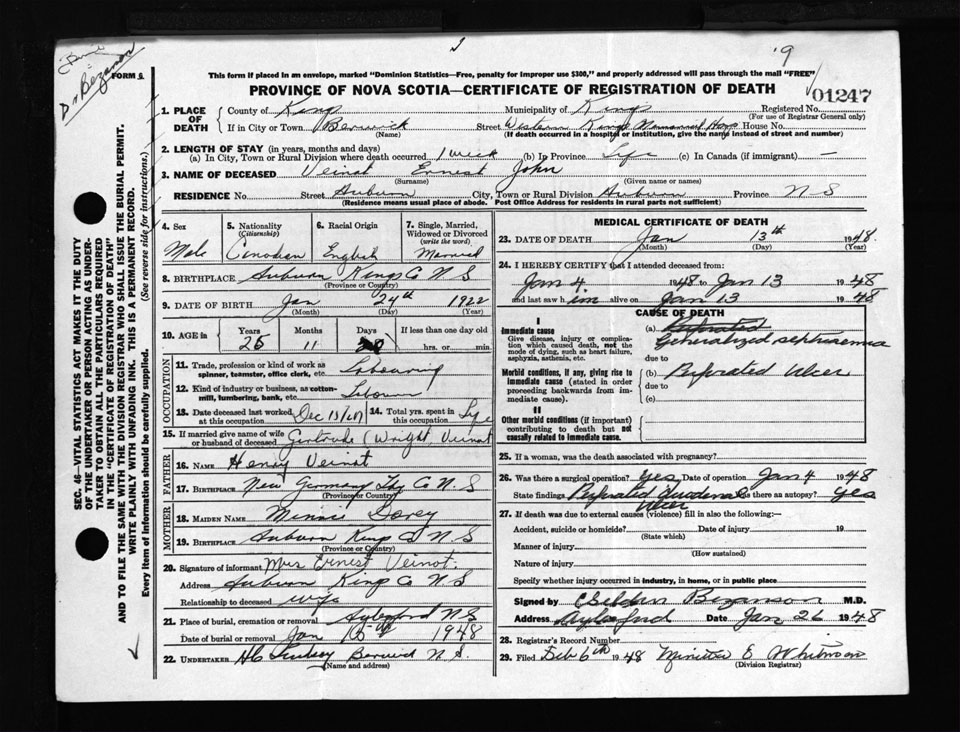 Dr Bezanson
FORM 6
9
This form if placed in an envelope, marked "Dominion Statistics—Free, penalty for improper use $300," and properly addressed will pass through the mail "FREE"
PROVINCE OF NOVA SCOTIA—CERTIFICATE OF REGISTRATION OF DEATH
01247
SEC. 46—VITAL STATISTICS ACT MAKES IT THE DUTY
OF THE UNDERTAKER OR PERSON ACTING AS UNDER-
TAKER TO OBTAIN ALL THE PARTICULARS REQUIRED
IN THE "CERTIFICATE OF REGISTRATION OF DEATH"
AND TO FILE THE SAME WITH THE DIVISION REGISTRAR WHO SHALL ISSUE THE BURIAL PERMIT.
WRITE PLAINLY WITH UNFADING INK. THIS IS A PERMANENT RECORD.
Every item of Information should be carefully supplied. (See reverse side for instructions.)
1. PLACE OF DEATH County of Kings Municipality of Kings Registered No.
(For use of Registrar General only)
If in City or Town Berwick Street Western Kings Memorial Hosp House No.
(Name) (If death occurred in a hospital or institution, give the name instead of street and number)
2. LENGTH OF STAY (in years, months and days)
(a) In City, Town or Rural Division where death occurred 1 week (b) In Province Life (c) In Canada (if immigrant) —
3. NAME OF DECEASED Veinot Ernest John
(Surname) (Given name or names)
RESIDENCE No. Street Auburn City, Town or Rural Division Auburn Province N-S
(Residence means usual place of abode. Post Office Address for residents in rural parts not sufficient)
4. Sex 5. Nationality (Citizenship) 6. Racial Origin 7. Single, Married, Widowed or Divorced (write the word)
Male Canadian English Married
8. BIRTHPLACE Auburn Kings Co N S
(Province or Country)
9. DATE OF BIRTH Jan 24th 1922
(Month) (Day) (Year)
10. AGE in Years Months Days If less than one day old
25 11 20 hrs. or min.
OCCUPATION
11. Trade, profession or kind of work as spinner, teamster, office clerk, etc. Labouring
12. Kind of industry or business, as cotton-mill, lumbering, bank, etc. Labourer
13. Date deceased last worked at this occupation Dec 15/47 14. Total yrs. spent in this occupation Life
15. If married give name of wife or husband of deceased Gertrude (Wright) Veinot
FATHER
16. NAME Henry Veinot
17. BIRTHPLACE New Germany Lbg Co N.S
(Province or Country)
MOTHER
18. MAIDEN NAME Minnie Dorey
19. BIRTHPLACE Auburn Kings Co N S
(Province or Country)
20. Signature of informant Mrs Ernest Veinot
Address Auburn Kings Co N S
Relationship to deceased wife
21. Place of burial, cremation or removal Aylesford N S
Date of burial or removal Jan 15th 1948
22. UNDERTAKER H C Lindsay Berwick N.S.
(Name and address)
MEDICAL CERTIFICATE OF DEATH
23. DATE OF DEATH Jan 13th 1948.
(Month) (Day)
24. I HEREBY CERTIFY that I attended deceased from:
Jan 4 1948 to Jan 13 1948
and last saw him alive on Jan 13 1948
CAUSE OF DEATH
I
Immediate cause
Give disease, injury or complication which caused death, not the mode of dying, such as heart failure, asphyxia, asthenia, etc.
(a) Perforated
Generalized septicaemia
due to
Morbid conditions, if any, giving rise to immediate cause (stated in order proceeding backwards from immediate cause).
(b) Perforated Ulcer
due to
(c)
II
Other morbid conditions (if important) contributing to death but not causally related to immediate cause.
25. If a woman, was the death associated with pregnancy?
26. Was there a surgical operation? Yes Date of operation Jan 4 1948
State findings Perforated Duodenal Ulcer Was there an autopsy? Yes
27. If death was due to external causes (violence) fill in also the following:—
Accident, suicide or homicide? Date of injury 19
(State which)
Manner of injury
(How sustained)
Nature of injury
Specify whether injury occurred in industry, in home, or in public place
Signed by Selden Bezanson M.D.
Address Aylesford Date Jan 26 1948
28. Registrar's Record Number
29. Filed Feb 6th 1948 Minetta E Whitman
(Division Registrar)